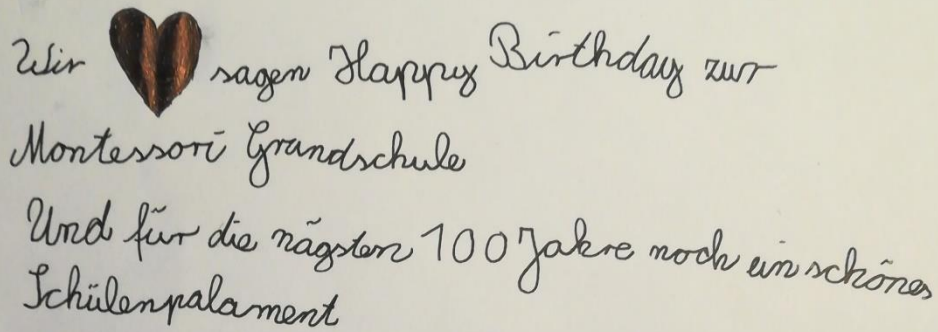 Wir sagen Happy Birthday zur
Montessori Grandschule
Und für die nägsten 100 Jahre noch ein schönes
Schülenpalament